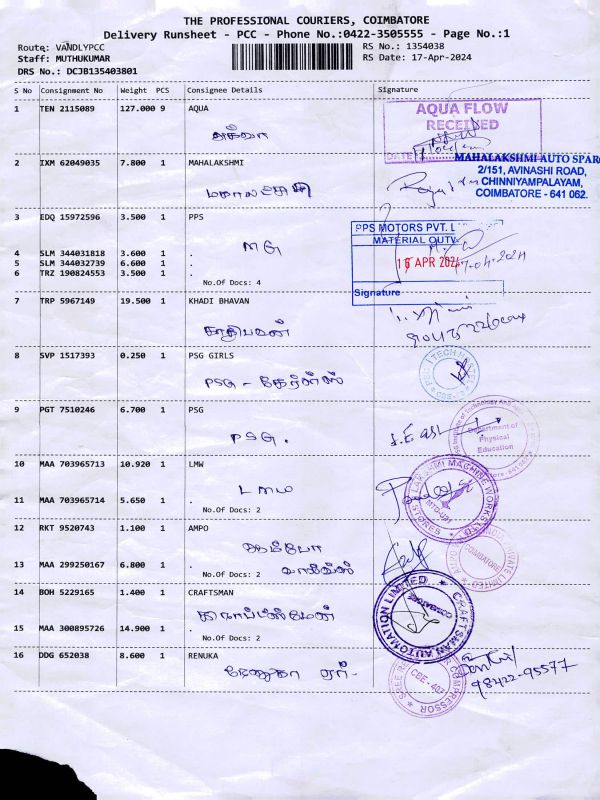 THE PROFESSIONAL COURIERS, COIMBATORE
Delivery Runsheet - PCC - Phone No.:0422-3505555 - Page No.:1
Route: VANDLYPCC
RS No.: 1354038
Staff: MUTHUKUMAR
RS Date: 17-Apr-2024
DRS No.: DCJB135403801
S No Consignment No Weight PCS Consignee Details Signature
1 TEN 2115089 127.000 9 AQUA
AQUA FLOW
RECEIVED
DATE
2 IXM 62049035 7.800 1 MAHALAKSHMI
MAHALAKSHMI AUTO SPAR
2/151, AVINASHI ROAD,
CHINNIYAMPALAYAM,
COIMBATORE - 641 062.
3 EDQ 15972596 3.500 1 PPS
PPS MOTORS PVT. L
MATERIAL OUTW
MG
4 SLM 344031818 3.600 1 .
5 SLM 344032739 6.600 1 .
16 APR 2024
17-04-2024
6 TRZ 190824553 3.500 1 .
No.Of Docs: 4
Signature
7 TRP 5967149 19.500 1 KHADI BHAVAN
காதிபவன்
8 SVP 1517393 0.250 1 PSG GIRLS
PSG - கேர்ள்ஸ்
9 PGT 7510246 6.700 1 PSG
PSG.
Department of
Physical
Education
10 MAA 703965713 10.920 1 LMW
LMW
LAKSHMI MACHINE WORKS LTD
STORES
11 MAA 703965714 5.650 1 .
No.Of Docs: 2
12 RKT 9520743 1.100 1 AMPO
ஆம்போ
வால்வ்ஸ்
COIMBATORE
13 MAA 299250167 6.800 1 .
No.Of Docs: 2
14 BOH 5229165 1.400 1 CRAFTSMAN
CRAFTSMAN AUTOMATION LIMITED
COIMBATORE
15 MAA 300895726 14.900 1 .
No.Of Docs: 2
16 DDG 652038 8.600 1 RENUKA
ரேணுகா ஏர்
SREE RE
COMPRESSOR
CBE - 407
98422-95577